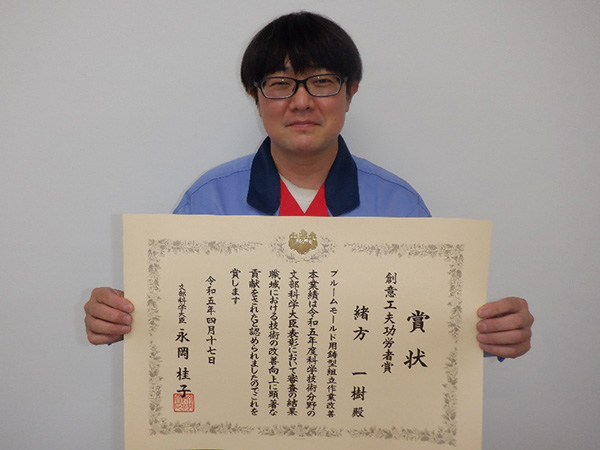 賞状
創意工夫功労者賞
緒方 一樹 殿
ブルームモールド用鋳型組立作業改善
本業績は令和五年度科学技術分野の
文部科学大臣表彰において審査の結果
職域における技術の改善向上に顕著な
貢献をされたと認められましたのでこれを
賞します
令和五年四月十七日
文部科学大臣 永岡 桂子